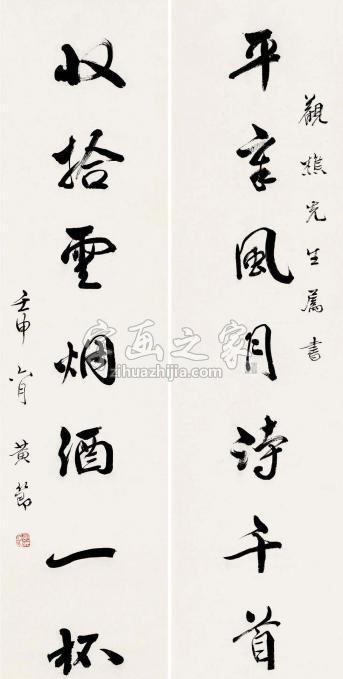 觀樵先生屬書
平章風月詩千首
收拾雲烟酒一杯
壬申六月 黄節
字画之家
zihuazhijia.com